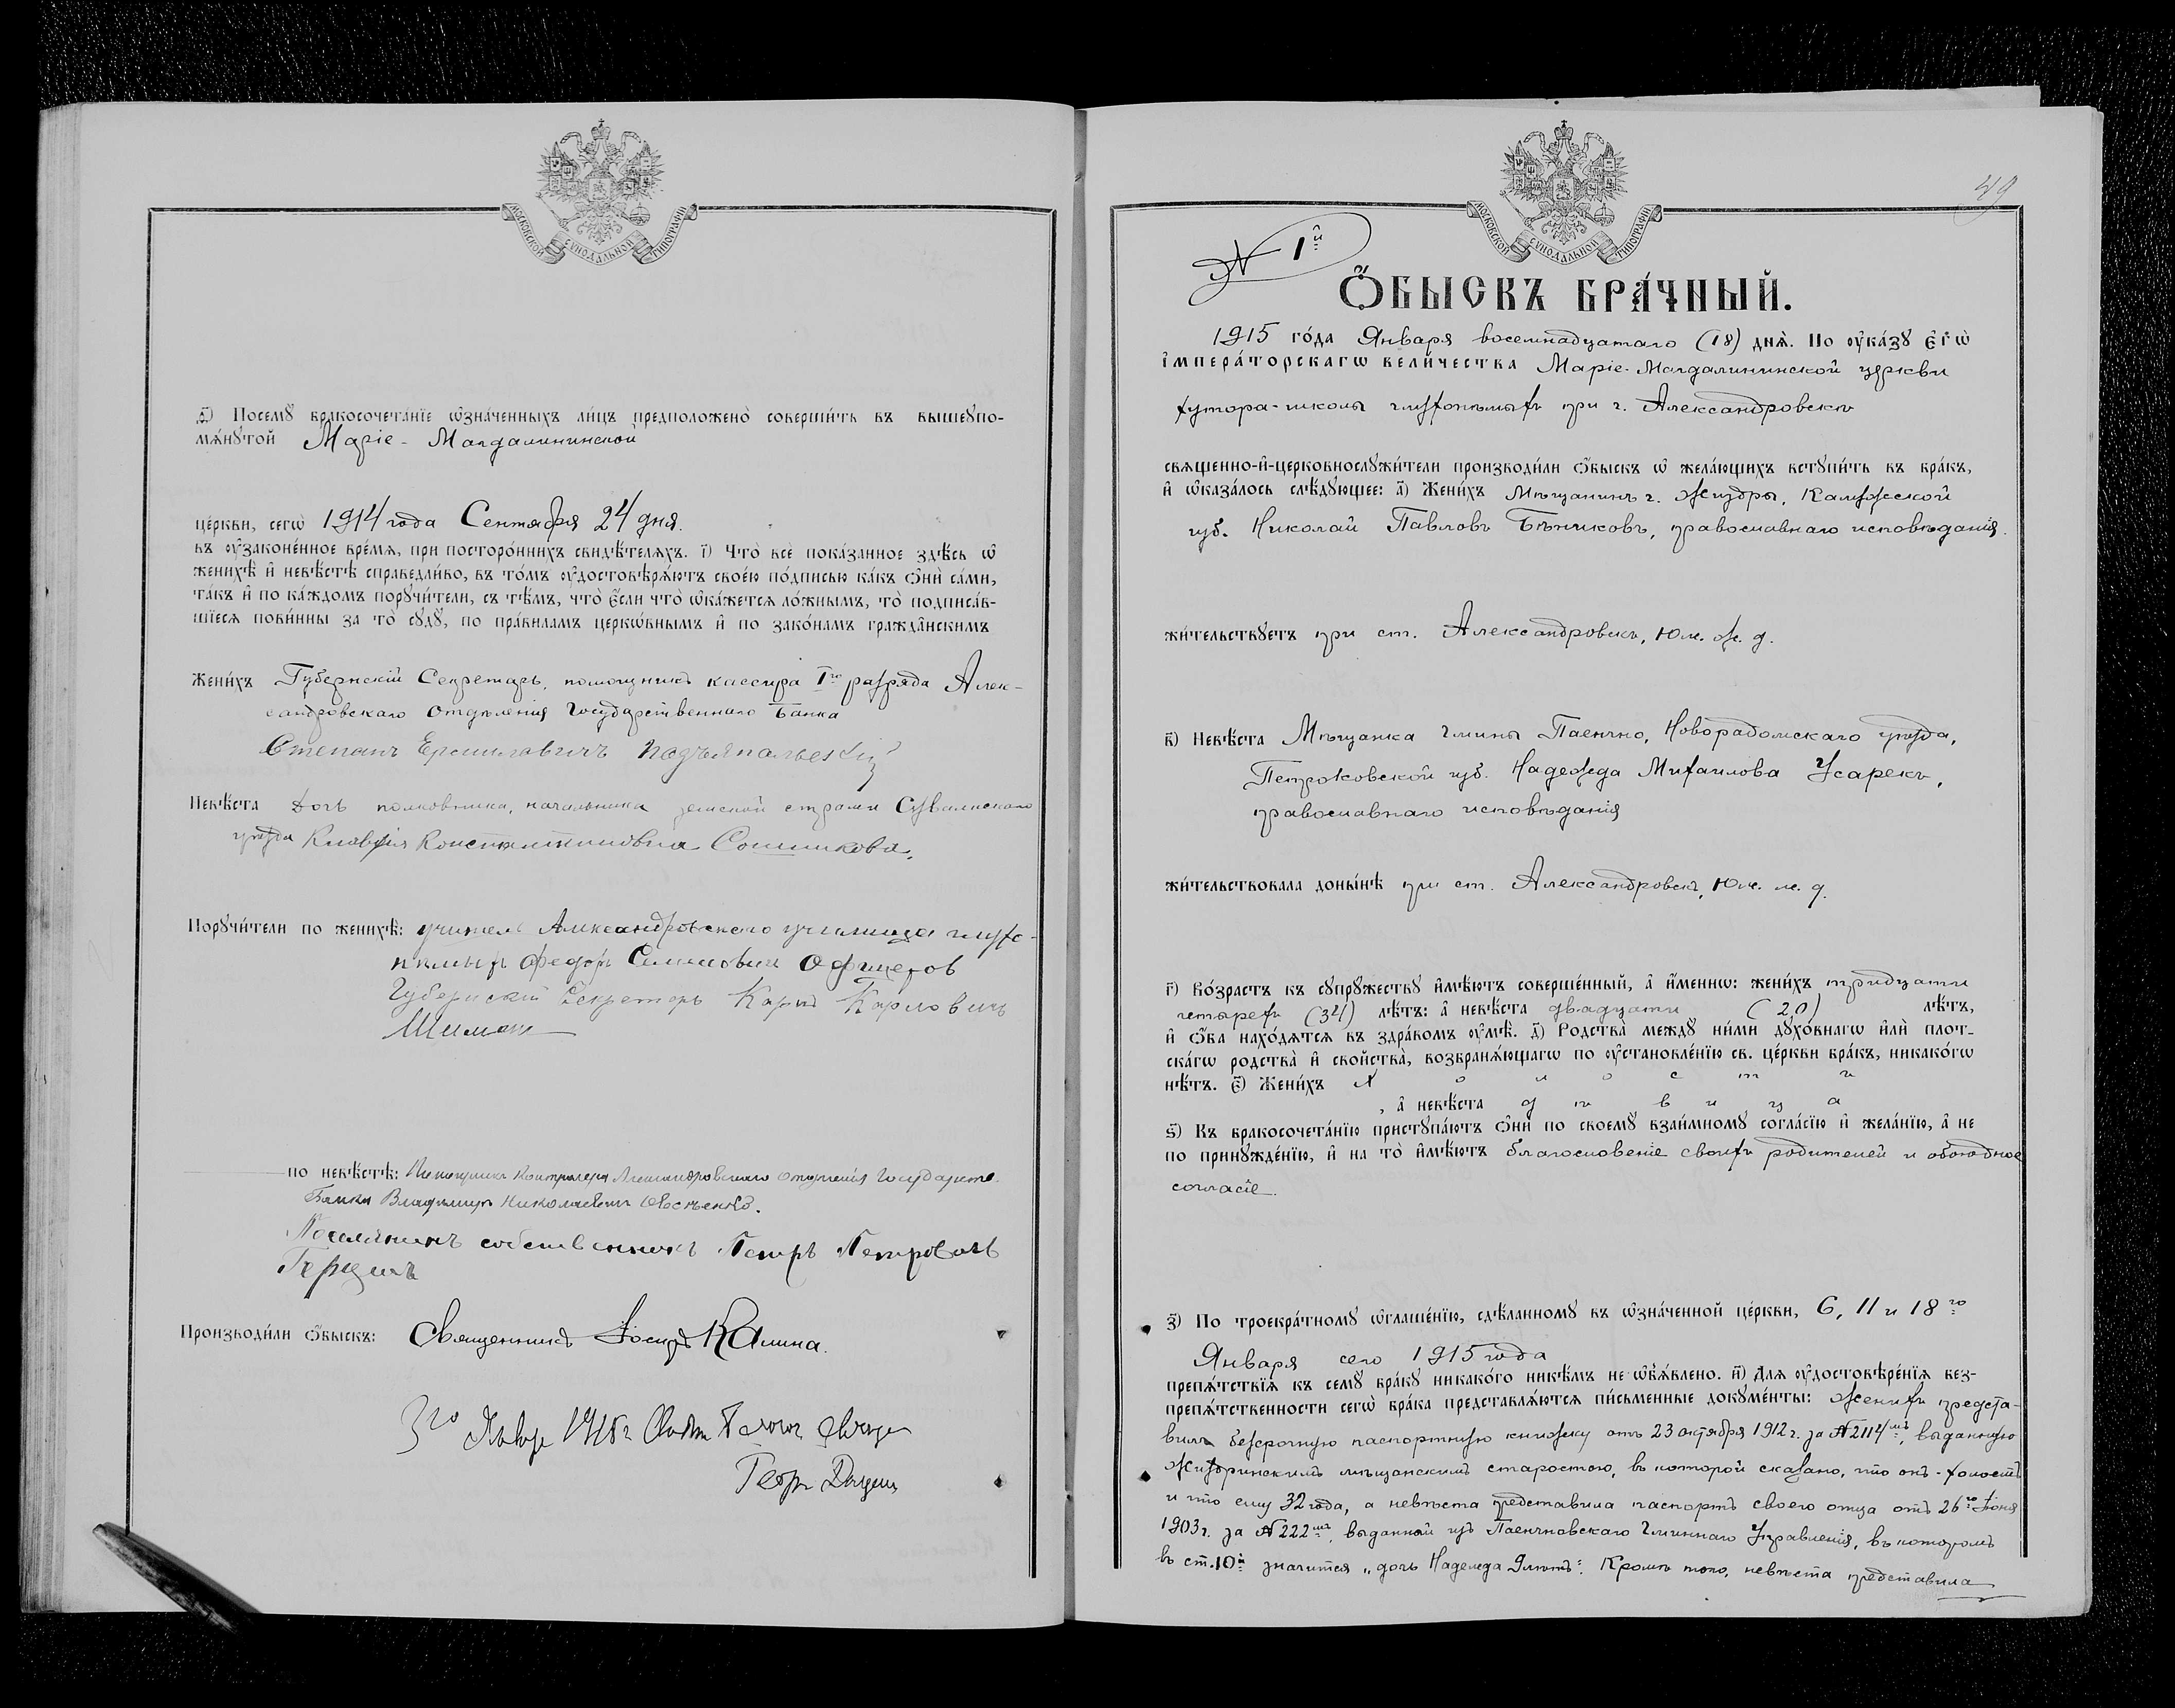 МОСКОВСКОЙ СѴНОДАЛЬНОЙ ТИПОГРАФІИ
Посемꙋ бракосочета́нїе ѡ҆зна́ченныхъ ли́цъ предположено̀ соверши́ть въ вышеꙋпо-
мѧ́нꙋтой Маріе-Магдалининской
це́ркви, сегѡ̀ 1914 года Сентября 24 дня.
въ ᲂу҆законе́нное вре́мѧ, при посторо́ннихъ свидѣ́телѧхъ. і҃) Что̀ всѐ пока́занное здѣ́сь ѡ҆
женихѣ̀ и҆ невѣ́стѣ справедли́во, въ то́мъ ᲂу҆достовѣрѧ́ютъ свое́ю по́дписью ка́къ ѻ҆нѝ са́ми,
та́къ и҆ по ка́ждомъ порꙋчи́тели, съ тѣ́мъ, что̀ є҆́сли что̀ ѡ҆ка́жетсѧ ло́жнымъ, то̀ подписа́в-
шїесѧ пови́нны за то̀ сꙋдꙋ̀, по пра́виламъ церкѡ́внымъ и҆ по зако́намъ гражда́нскимъ
Жени́хъ Губернскій Секретарь, помощникъ кассира Iго разряда Алек-
сандровскаго Отдѣленія Государственнаго Банка
Степанъ
Невѣ́ста Дочь полковника, начальника земской стражи Сувалкскаго
уѣзда Клавдія Константиновна Сошникова.
Порꙋчи́тели по женихѣ̀: учитель Александровскаго училища глухо-
нѣмыхъ Федоръ Офицеров
Губернскій Секретарь Карлъ Карловичъ
по невѣ́стѣ: Помощникъ Контролера Александровскаго Отдѣленія Государств.
Банка Владимиръ Николаевичъ
Поселянинъ собственникъ Петръ Петровичъ
Герцевъ
Производи́ли ѻ҆́быскъ: Священникъ Іосифъ Калина.
3го 1915 г.
МОСКОВСКОЙ СѴНОДАЛЬНОЙ ТИПОГРАФІИ
49
№ 1й
Ѻ҆́БЫСКЪ БРА́ЧНЫЙ.
1915 го́да Января восемнадцатаго (18) днѧ̀. По ᲂу҆ка́зꙋ є҆гѡ̀
і҆мпера́торскагѡ вели́чества Маріе-Магдалининской церкви
хутора-школы глухонѣмыхъ при г. Александровскѣ
свѧщенно-и҆-церковнослꙋжи́тели производи́ли ѻ҆́быскъ ѡ҆ жела́ющихъ встꙋпи́ть въ бра́къ,
и҆ ѡ҆каза́лось слѣ́дꙋющее: а҃) Жени́хъ Мѣщанинъ г. Жиздры, Калужской
губ. Николай Павловъ Бѣниковъ, православнаго исповѣданія.
жи́тельствꙋетъ при ст. Александровскъ, Юж. ж. д.
в҃) Невѣ́ста Мѣщанка гмины Паенчно, Новорадомскаго уѣзда,
Петроковской губ. Надежда Михаилова Усарекъ,
православнаго исповѣданія
жи́тельствовала доны́нѣ при ст. Александровскъ, Юж. ж. д.
г҃) Во́зрастъ къ сꙋпрꙋ́жествꙋ и҆мѣ́ютъ соверше́нный, а҆ и҆́меннѡ: жени́хъ тридцати
четырехъ (34) лѣ́тъ: а҆ невѣ́ста двадцати (20) лѣ́тъ,
и҆ ѻ҆́ба нахо́дѧтсѧ въ здра́вомъ ᲂу҆мѣ̀. д҃) Родства̀ междꙋ̀ ни́ми дꙋхо́внагѡ и҆лѝ плот-
ска́гѡ родства̀ и҆ сво́йства̀, возбранѧ́ющагѡ по ᲂу҆становле́нїю св. це́ркви бра́къ, никако́гѡ
нѣ́тъ. є҃) Жени́хъ х о л о с т ъ
, а҆ невѣ́ста д ѣ в и ц а
ѕ҃) Къ бракосочета́нїю пристꙋпа́ютъ ѻ҆нѝ по своемꙋ̀ взаи́мномꙋ согла́сїю и҆ жела́нїю, а҆ не
по принꙋжде́нїю, и҆ на то̀ и҆мѣ́ютъ благословеніе своихъ родителей и обоюдное
согласіе.
з҃) По троекра́тномꙋ ѡ҆глаше́нїю, сдѣ́ланномꙋ въ ѡ҆зна́ченной це́ркви, 6, 11 и 18го
Января сего 1915 года
препѧ́тствїѧ къ семꙋ̀ бра́кꙋ никако́го никѣ́мъ не ѡ҆б̾ѧ́влено. и҃) Длѧ ᲂу҆достовѣре́нїѧ без-
препѧ́тственности сегѡ̀ бра́ка представлѧ́ютсѧ пи́сьменные докꙋме́нты: Женихъ предста-
вилъ безсрочную паспортную книжку отъ 23 октября 1912 г. за №2114мъ, выданную
Жиздринскимъ мѣщанскимъ старостою, въ которой сказано, что онъ - холостъ
и что ему 32 года, а невѣста представила паспортъ своего отца отъ 26го Іюня
1903 г. за №222мъ, выданный изъ Паенчновскаго Гминнаго Управленія, въ которомъ
въ ст. 10й значится „дочь Надежда 9 лѣтъ". Кромѣ того, невѣста представила